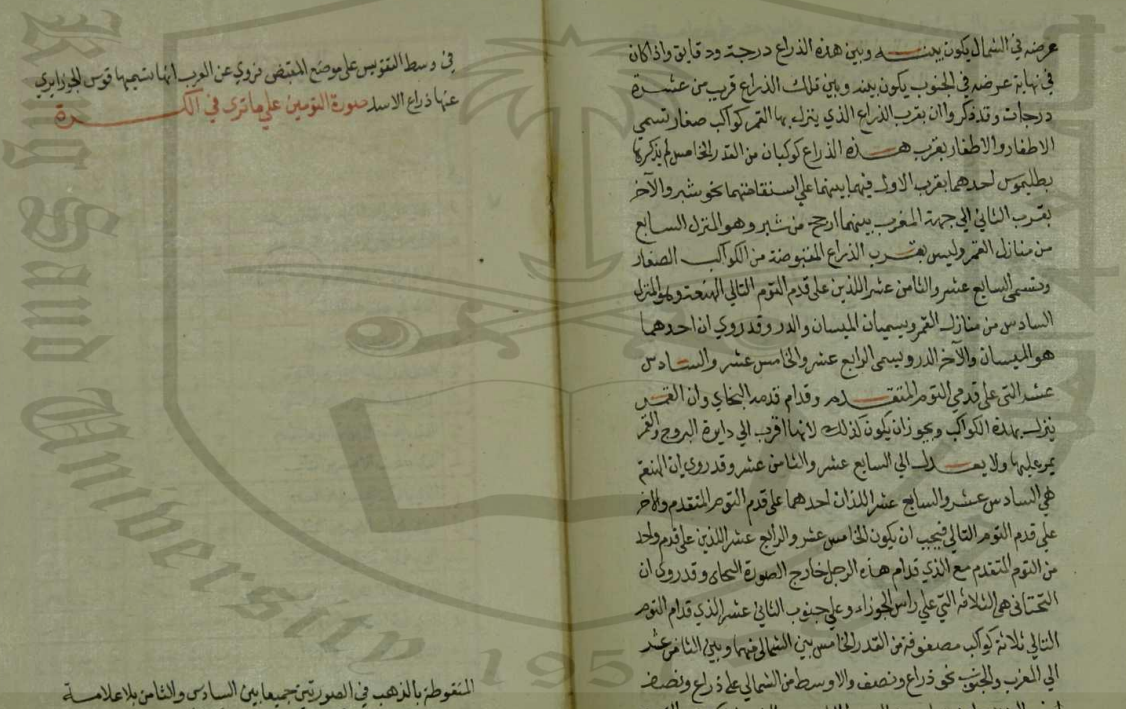 عرضه في الشمال يكون بينه وبين هذه الذراع درجة ودقايق واذا كان
في نهاية عرضه في الجنوب يكون بينه وبين تلك الذراع قريب من عشرة
درجات وقد ذكروا ان بقرب الذراع الذي ينزل بها القمر كواكب صغار تسمي
الاظفار والاظفار بقرب هذه الذراع كوكبان من القدر الخامس لم يذكرها
بطليموس احدهما بقرب الاول فيما بينهما علي استقامتهما نحو شبر والآخر
بقرب الثاني الي جهة المغرب بينهما ارجح من شبر وهو المنزل السابع
من منازل القمر وليس بقرب الذراع المقبوضة من الكواكب الصغار
وتسمي السابع عشر والثامن عشر اللذين علي قدم التوم التالي الهنعة وهو المنزل
السادس من منازل القمر ويسميان الميسان والدر وقد روي ان احدهما
هو الميسان والآخر الدر ويسمي الرابع عشر والخامس عشر والسادس
عشر التي علي قدمي التوم المتقدم وقدام قدمه البحاي وان القمر
ينزل بهذه الكواكب ويجوز ان يكون كذلك لانها اقرب الي دايرة البروج والقمر
يمر عليها ولا يعدل الي السابع عشر والثامن عشر وقد روي ان الهنعة
هي السادس عشر والسابع عشر اللذان احدهما علي قدم التوم المتقدم والآخر
علي قدم التوم التالي فيجب ان يكون الخامس عشر والرابع عشر اللذين علي قدم واحد
من التوم المتقدم مع الذي قدام هذه الرجل خارج الصورة البحاى وقد روي ان
البحاى هي الثلاثة التي علي راس الجوزاء وعلي جنوب الثاني عشر الذي قدام التوم
التالي ثلاثة كواكب مصفوفة من القدر الخامس بين الشمالي منها وبين الثامن عشر
الي المغرب والجنوب نحو ذراع ونصف والاوسط من الشمالي علي ذراع ونصف
في وسط التقويس علي موضع المقبض نروي عن العرب انها تسميها قوس الجوزا يري
عنها ذراع الاسد صورة التومين علي ما تري في الكرة
المنقوطة بالذهب في الصورتين جميعا بين السادس والثامن بلا علامة
King Saud University
1957